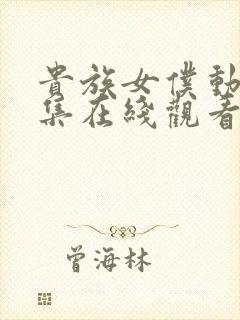 貴族女僕動
集在綫觀看
曾海林